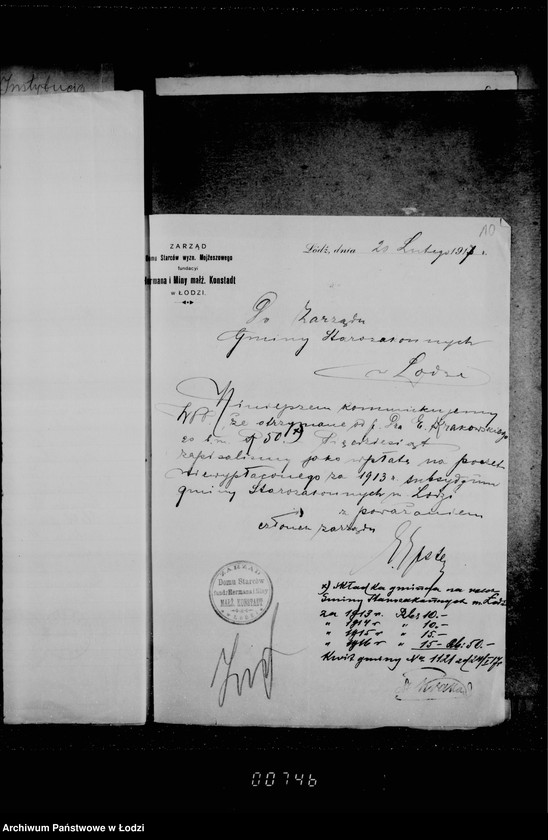 Instytucja
10
ZARZĄD
Domu Starców wyzn. Mojżeszowego
fundacyi
Hermana i Miny małż. Konstadt
w ŁODZI.
Łódź, dnia 20 Lutego 1917 r.
Do Zarządu
Gminy Starozakonnych
w Łodzi
Niniejszem komunikujemy
WPP. że otrzymane od p. Dra E. Krakowskiego
50 x) Pięćdziesiąt
zapisaliśmy jako wpłatę na poczet
niewypłaconego za 1913 r. subsydyum
gminy Starozakonnych m. Łodzi
z poważaniem
członek zarządu
ZARZĄD
Domu Starców
fund. Hermana i Miny
MAŁŻ. KONSTADT
x) Składka gminna na rzecz
Gminy Starozakonnych m. Łodzi
za 1913 r. Rbs 10.-
" 1914 r " 10.-
" 1915 r " 15.-
" 1916 r " 15.- Rb: 50.-
Kwit gminy Nr. 1121
00746
Archiwum Państwowe w Łodzi